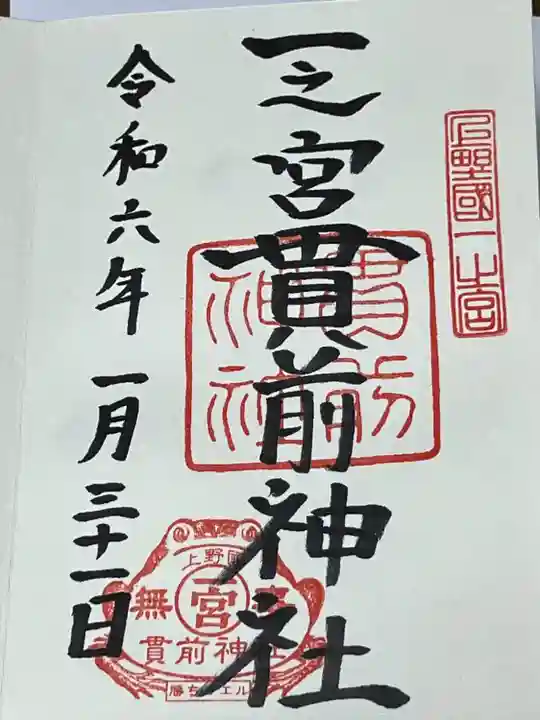 上野國一之宮
一之宮貫前神社
貫前神社
令和六年一月三十一日
上野國
無 宮
貫前神社
勝ち エル